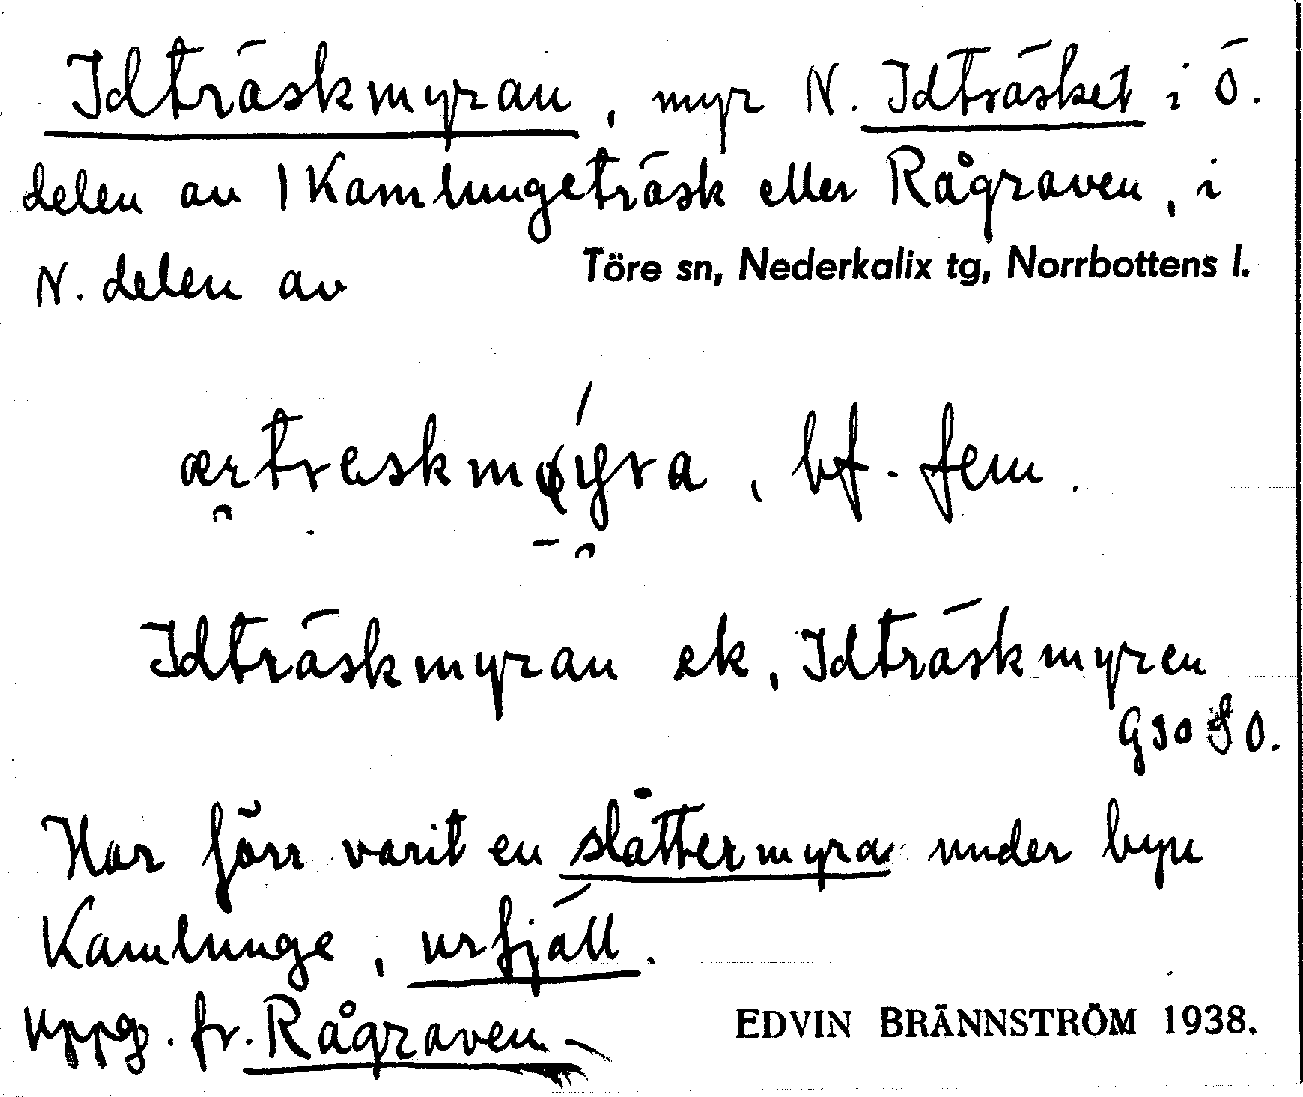 Idträskmyran, myr N. Idträsket i Ö.
delen av 1 Kamlungeträsk eller Rågraven, i
N. delen av Töre sn, Nederkalix tg, Norrbottens l.
bf. fem.
Idträskmyran ek, Idträskmyren
G30 SO.
Har förr varit en slåttermyra under byn
Kamlunge, urfjäll.
uppg. fr. Rågraven
EDVIN BRÄNNSTRÖM 1938.